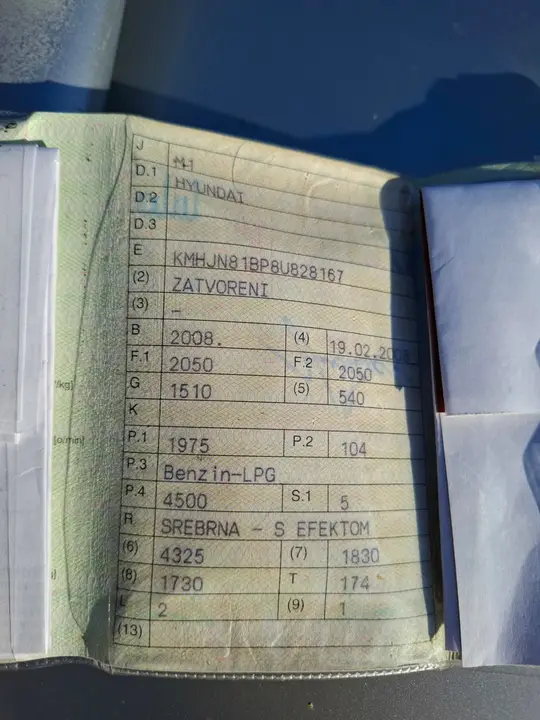 J M1
D.1 HYUNDAI
D.2
D.3
E KMHJN81BP8U828167
(2) ZATVORENI
(3) -
B 2008. (4) 19.02.2008
F.1 2050 F.2 2050
G 1510 (5) 540
K
P.1 1975 P.2 104
P.3 Benzin-LPG
P.4 4500 S.1 5
R SREBRNA - S EFEKTOM
(6) 4325 (7) 1830
(8) 1730 T 174
L 2 (9) 1
(13)
/kg]